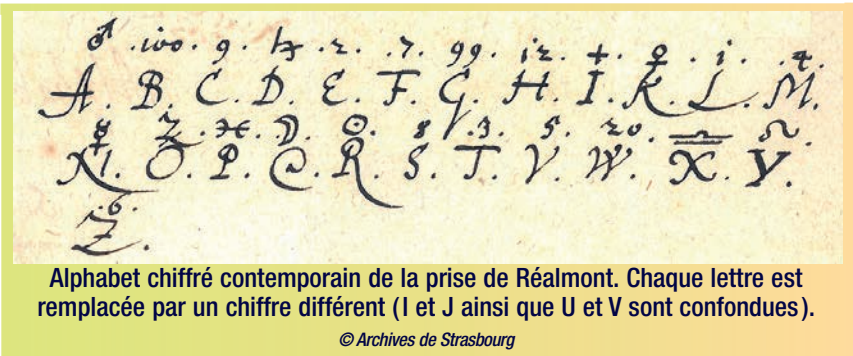 ♂ . 100 . 9 . ♄ . 2 . 7 . 99 . 12 . + . ♀ . i . 4 .
A . B . C . D . E . F . G . H . I . K . L . M .
☿ . Z . ♓ . ☽ . ☉ . 8 . 3 . 5 . 20 . ♎ . ♌
N . O . P . Q . R . S . T . V . W . X . Y .
. 6 .
Z .
Alphabet chiffré contemporain de la prise de Réalmont. Chaque lettre est
remplacée par un chiffre différent (I et J ainsi que U et V sont confondues).
© Archives de Strasbourg